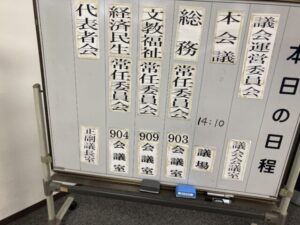 本日の日程
議会運営委員会 議会会議室
本会議 14:10 議場
総務常任委員会 903会議室
文教福祉常任委員会 909会議室
経済民生常任委員会 904会議室
代表者会 正副議長室